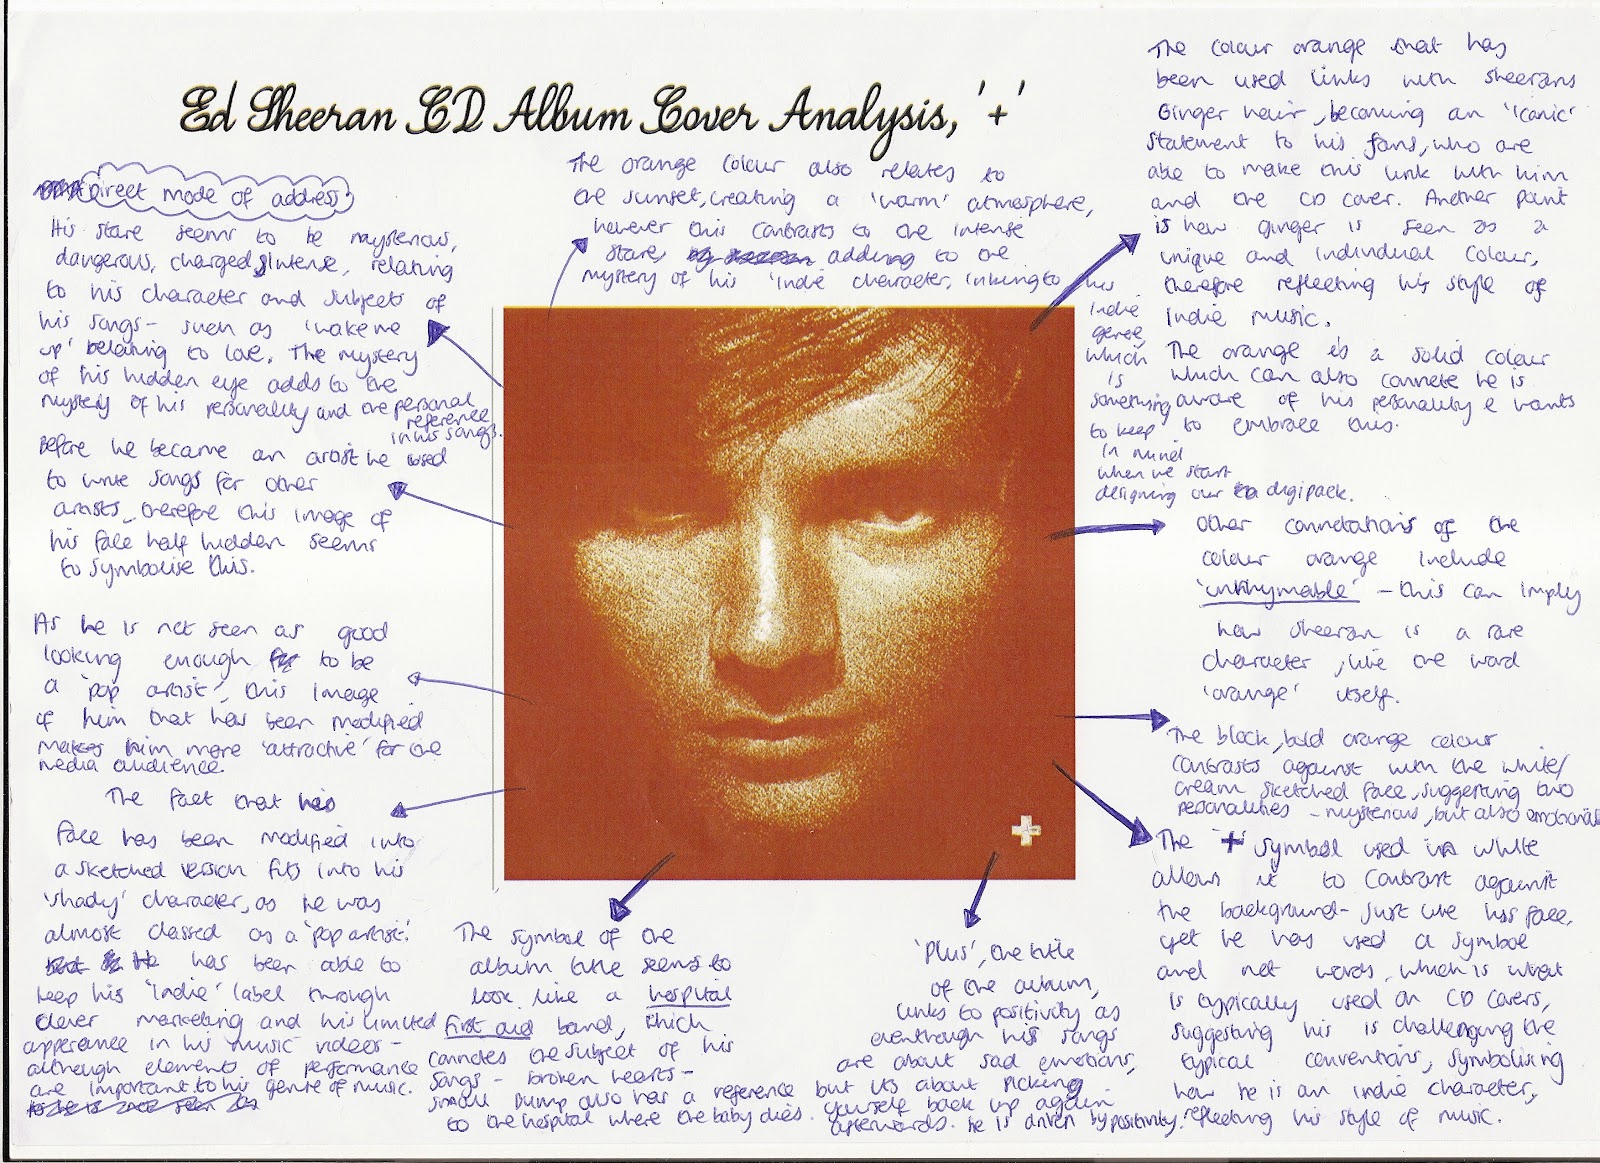 Ed Sheeran CD Album Cover Analysis, '+'
Direct mode of address
His stare seems to be mysterious,
dangerous, charged, intense, relating
to his character and subjects of
his songs - such as 'wake me
up' relating to love. The mystery
of his hidden eye adds to the
mystery of his personality and the personal
reference
in his songs.
Before he became an artist he used
to write songs for other
artists, therefore this image of
his face half hidden seems
to symbolise this.
As he is not seen as good
looking enough to be
a 'pop artist', this image
of him that has been modified
makes him more 'attractive' for the
media audience.
The fact that his
face has been modified into
a sketched version fits into his
'shady' character, as he was
almost classed as a 'pop artist'.
He has been able to
keep his 'Indie' label through
clever marketing and his limited
apperance in his music videos -
although elements of performance
are important to his genre of music.
The orange colour also relates to
the sunset, creating a 'warm' atmosphere,
however this contrasts to the intense
stare, adding to the
mystery of his 'indie character, linking to
his
indie
genre,
which
is
something
to keep
in mind
when we start
designing our digipack.
The colour orange that has
been used links with sheerans
Ginger hair, becoming an 'iconic'
statement to his fans, who are
able to make this link with him
and the CD cover. Another point
is how ginger is seen as a
unique and individual colour,
therefore reflecting his style of
Indie music.
The orange is a solid colour
which can also connote he is
aware of his personality & wants
to embrace this.
Other connotations of the
colour orange include
'unrhymable' - this can imply
how sheeran is a rare
character, like the word
'orange' itself.
The block, bold orange colour
contrasts against with the white/
cream sketched face, suggesting two
personalities - mysterious, but also emotional
The '+' symbol used in white
allows it to contrast against
the background - just like his face,
yet he has used a symbol
and not words, which is what
is typically used on CD covers,
suggesting his is challenging the
typical conventions, symbolising
how he is an indie character,
reflecting his style of music.
The symbol of the
album title seems to
look like a hospital
first aid band, which
connotes the subject of his
songs - broken hearts -
small bump also has a reference
to the hospital where the baby dies.
'Plus', the title
of the album,
links to positivity as
eventhough his songs
are about sad emotions,
but its about picking
yourself back up again
afterwards. he is driven by positivity.